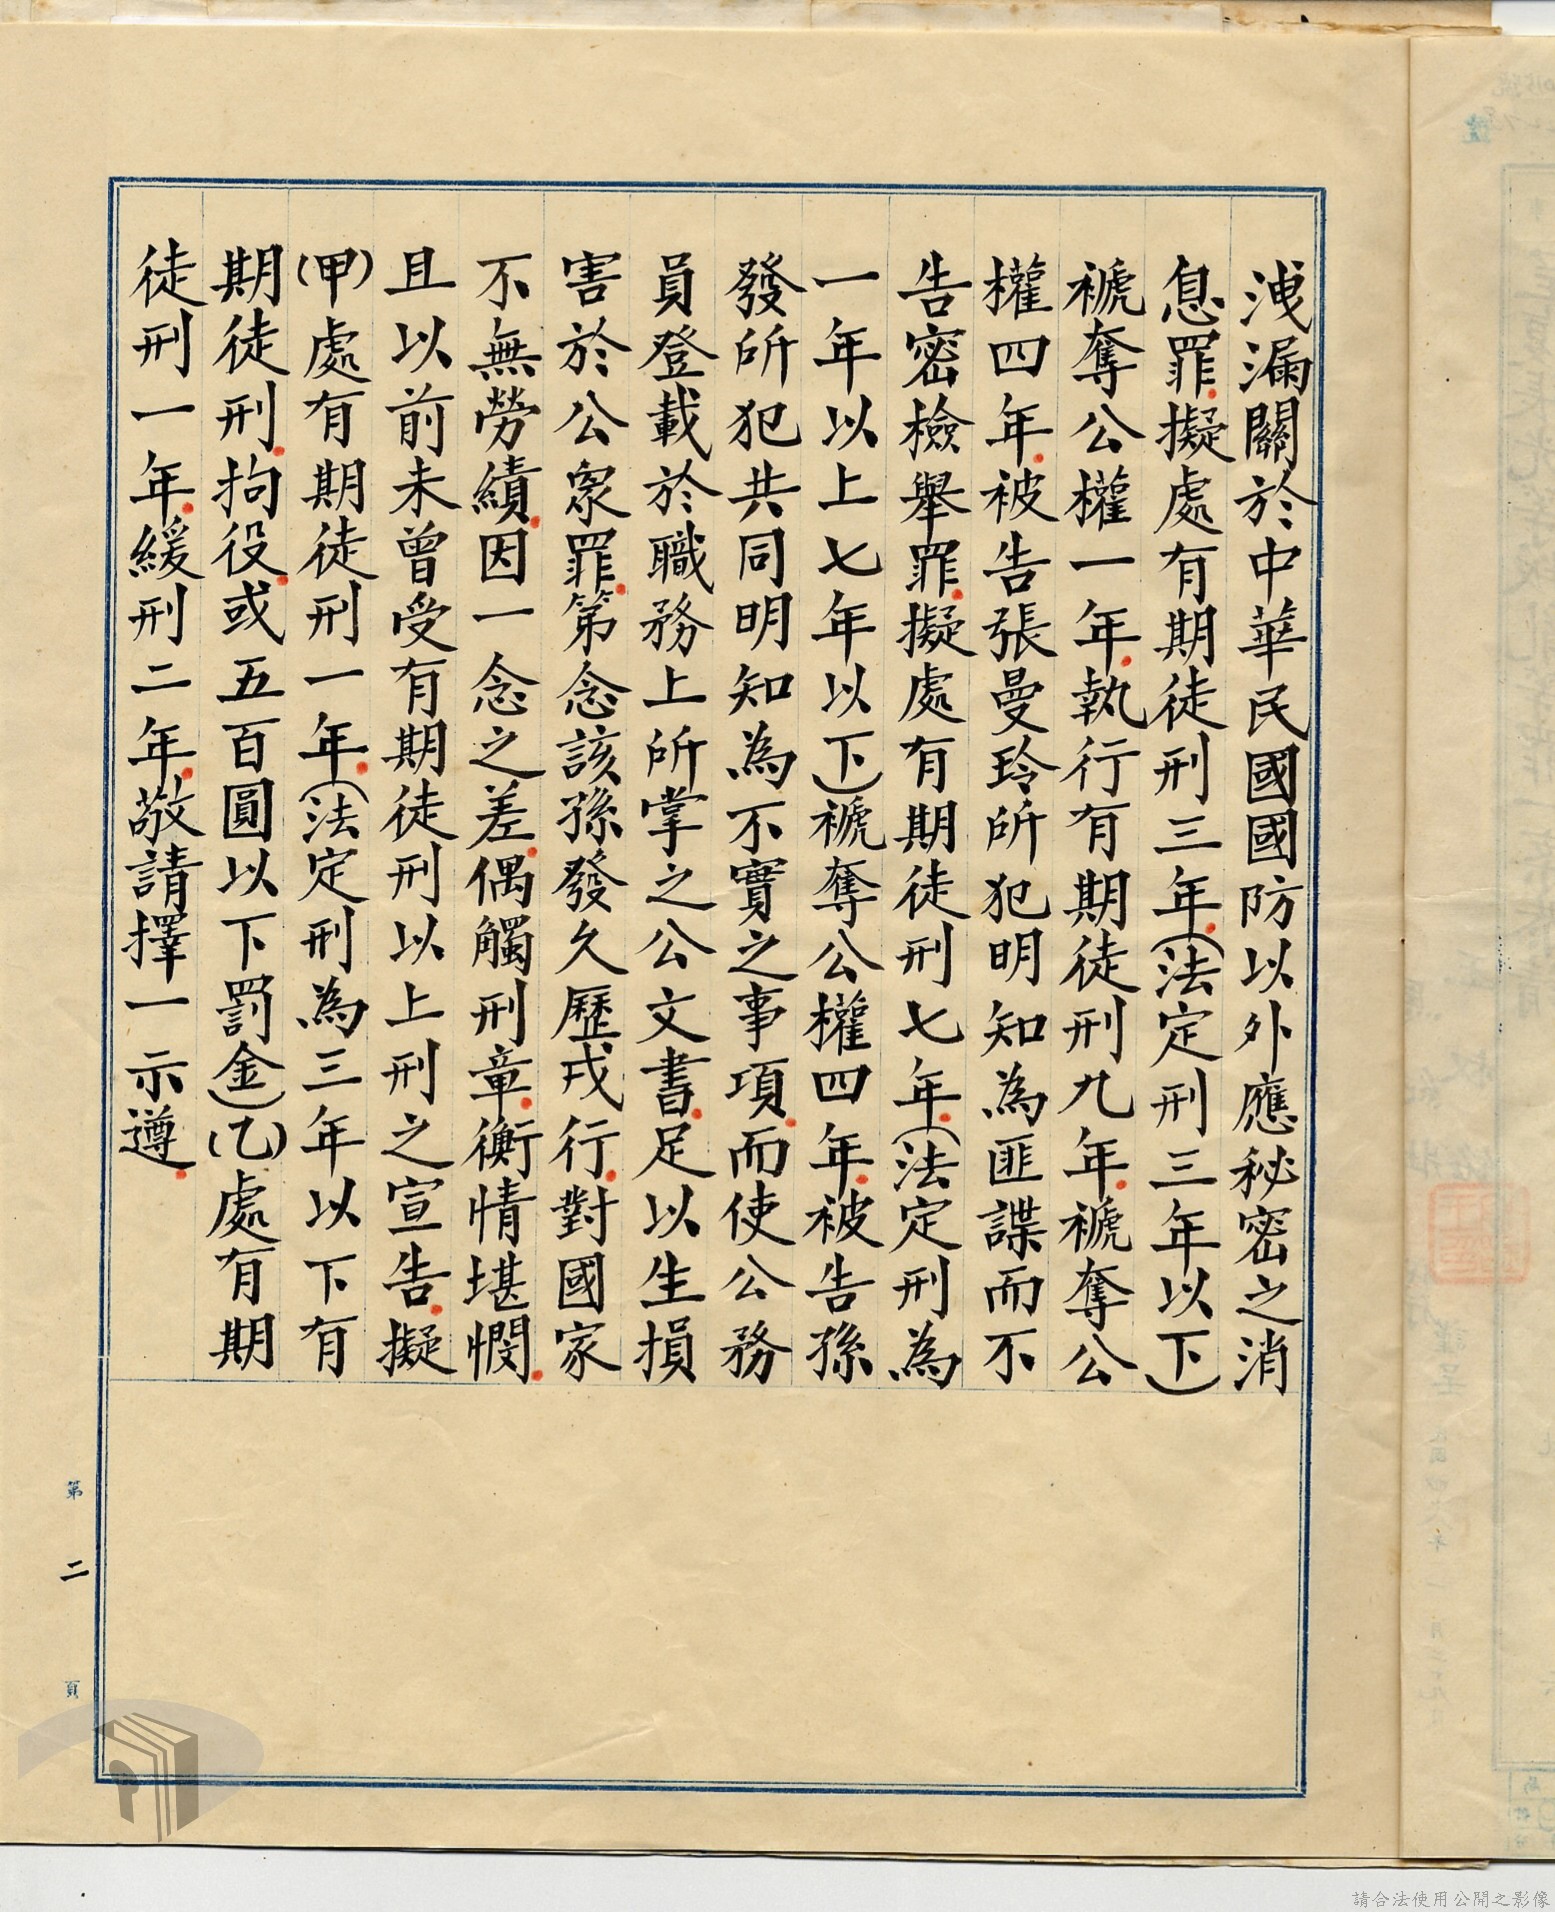 洩漏關於中華民國國防以外應秘密之消
息罪擬處有期徒刑三年(法定刑三年以下)
褫奪公權一年執行有期徒刑九年褫奪公
權四年被告張曼玲所犯明知為匪諜而不
告密檢舉罪擬處有期徒刑七年(法定刑為
一年以上七年以下)褫奪公權四年被告孫
發所犯共同明知為不實之事項而使公務
員登載於職務上所掌之公文書足以生損
害於公眾罪第念該孫發久歷戎行對國家
不無勞績因一念之差偶觸刑章衡情堪憫
且以前未曾受有期徒刑以上刑之宣告擬
(甲)處有期徒刑一年(法定刑為三年以下有
期徒刑拘役或五百圓以下罰金)(乙)處有期
徒刑一年緩刑二年敬請擇一示遵
第二頁
請合法使用公開之影像